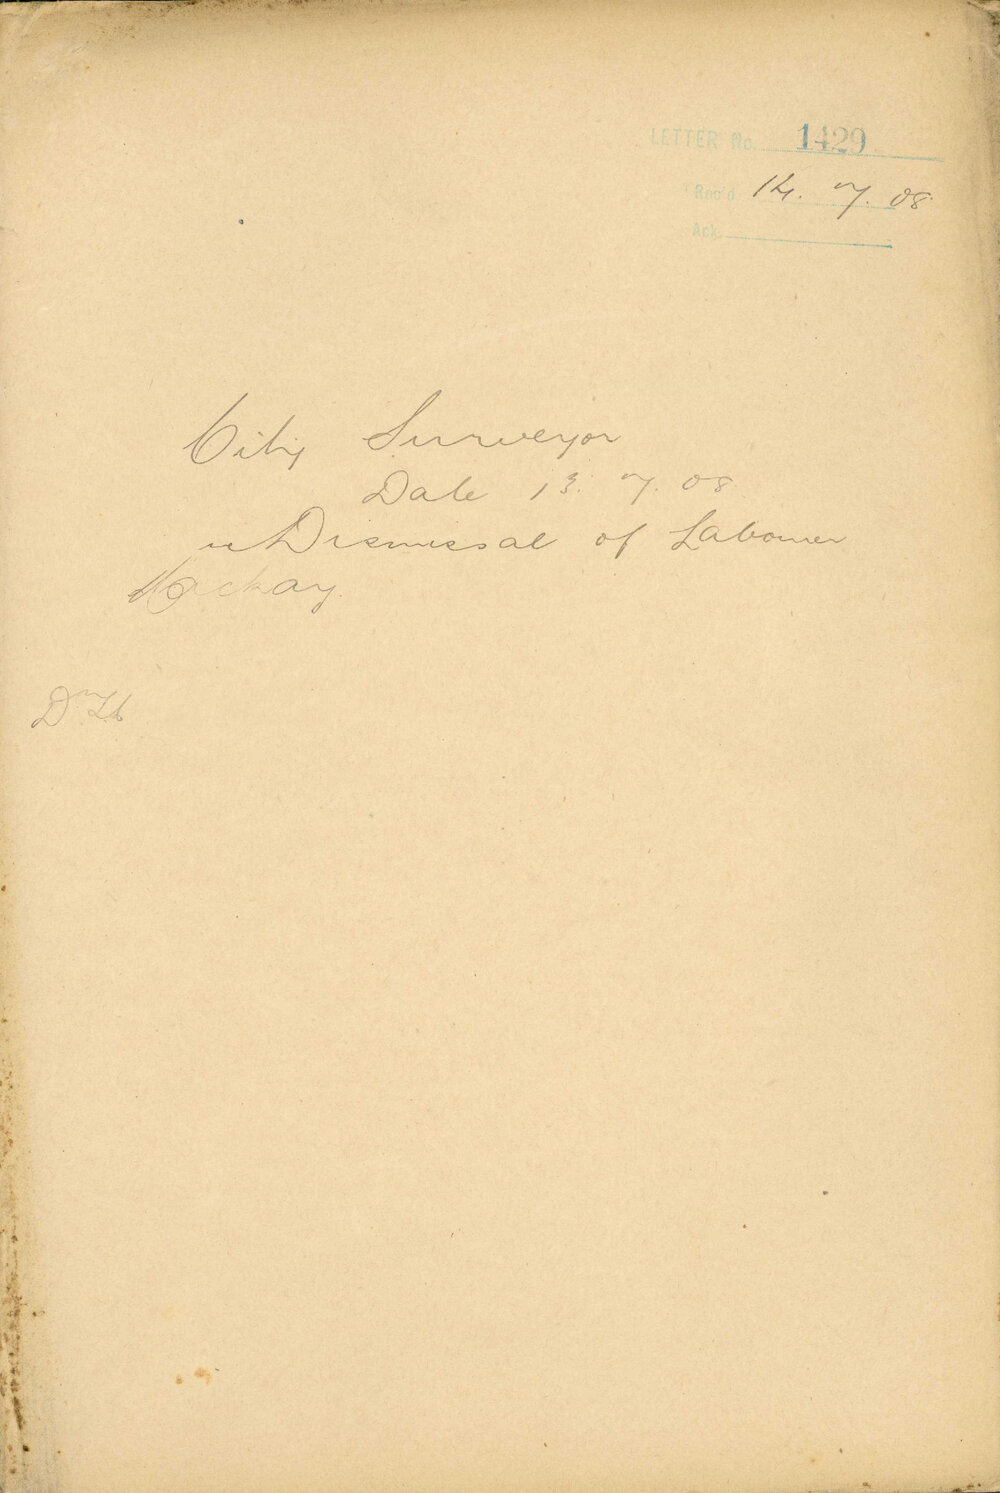 LETTER No. 1429
Rec'd 14. 7. 08
Ack.
City Surveyor
Date 13. 7. 08
re Dismissal of Labourer
Mackay.